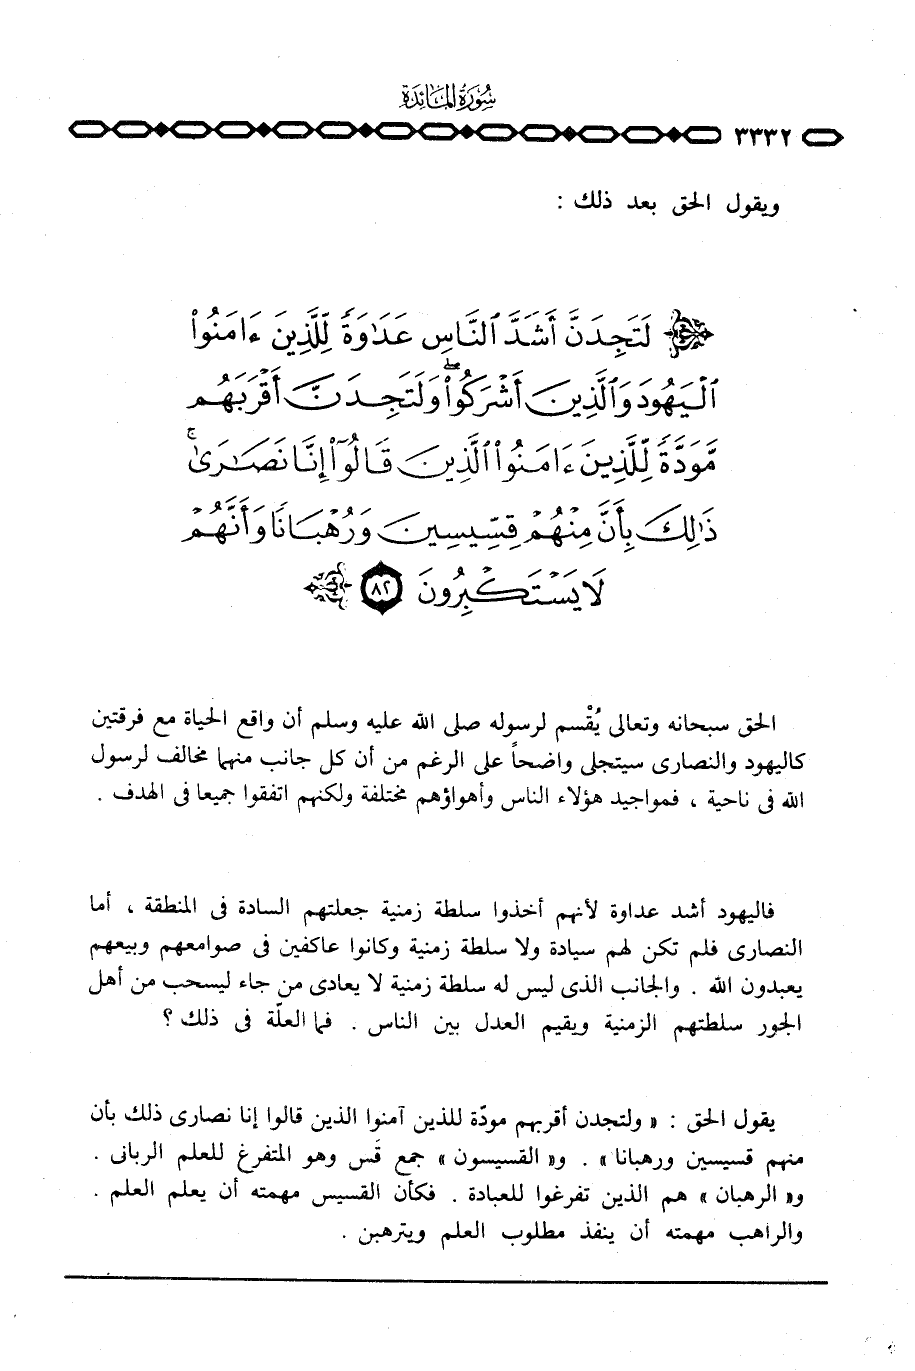 سُورَةُ المَائِدَة
٣٣٣٢
ويقول الحق بعد ذلك :
لَتَجِدَنَّ أَشَدَّ ٱلنَّاسِ عَدَٰوَةً لِّلَّذِينَ ءَامَنُواْ
ٱلْيَهُودَ وَٱلَّذِينَ أَشْرَكُواْۖ وَلَتَجِدَنَّ أَقْرَبَهُم
مَّوَدَّةً لِّلَّذِينَ ءَامَنُواْ ٱلَّذِينَ قَالُوٓاْ إِنَّا نَصَٰرَىٰۚ
ذَٰلِكَ بِأَنَّ مِنْهُمْ قِسِّيسِينَ وَرُهْبَانًا وَأَنَّهُمْ
لَا يَسْتَكْبِرُونَ ٨٢
الحق سبحانه وتعالى يُقْسم لرسوله صلى الله عليه وسلم أن واقع الحياة مع فرقتين
كاليهود والنصارى سيتجلى واضحاً على الرغم من أن كل جانب منهما مخالف لرسول
الله فى ناحية ، فمواجيد هؤلاء الناس وأهواؤهم مختلفة ولكنهم اتفقوا جميعا فى الهدف .
فاليهود أشد عداوة لأنهم أخذوا سلطة زمنية جعلتهم السادة فى المنطقة ، أما
النصارى فلم تكن لهم سيادة ولا سلطة زمنية وكانوا عاكفين فى صوامعهم وبيعهم
يعبدون الله . والجانب الذى ليس له سلطة زمنية لا يعادى من جاء ليسحب من أهل
الجور سلطتهم الزمنية ويقيم العدل بين الناس . فما العلّة فى ذلك ؟
يقول الحق : « ولتجدن أقربهم مودّة للذين آمنوا الذين قالوا إنا نصارى ذلك بأن
منهم قسيسين ورهبانا » . و« القسيسون » جمع قَس وهو المتفرغ للعلم الربانى .
و« الرهبان » هم الذين تفرغوا للعبادة . فكأن القسيس مهمته أن يعلم العلم .
والراهب مهمته أن ينفذ مطلوب العلم ويترهبن .